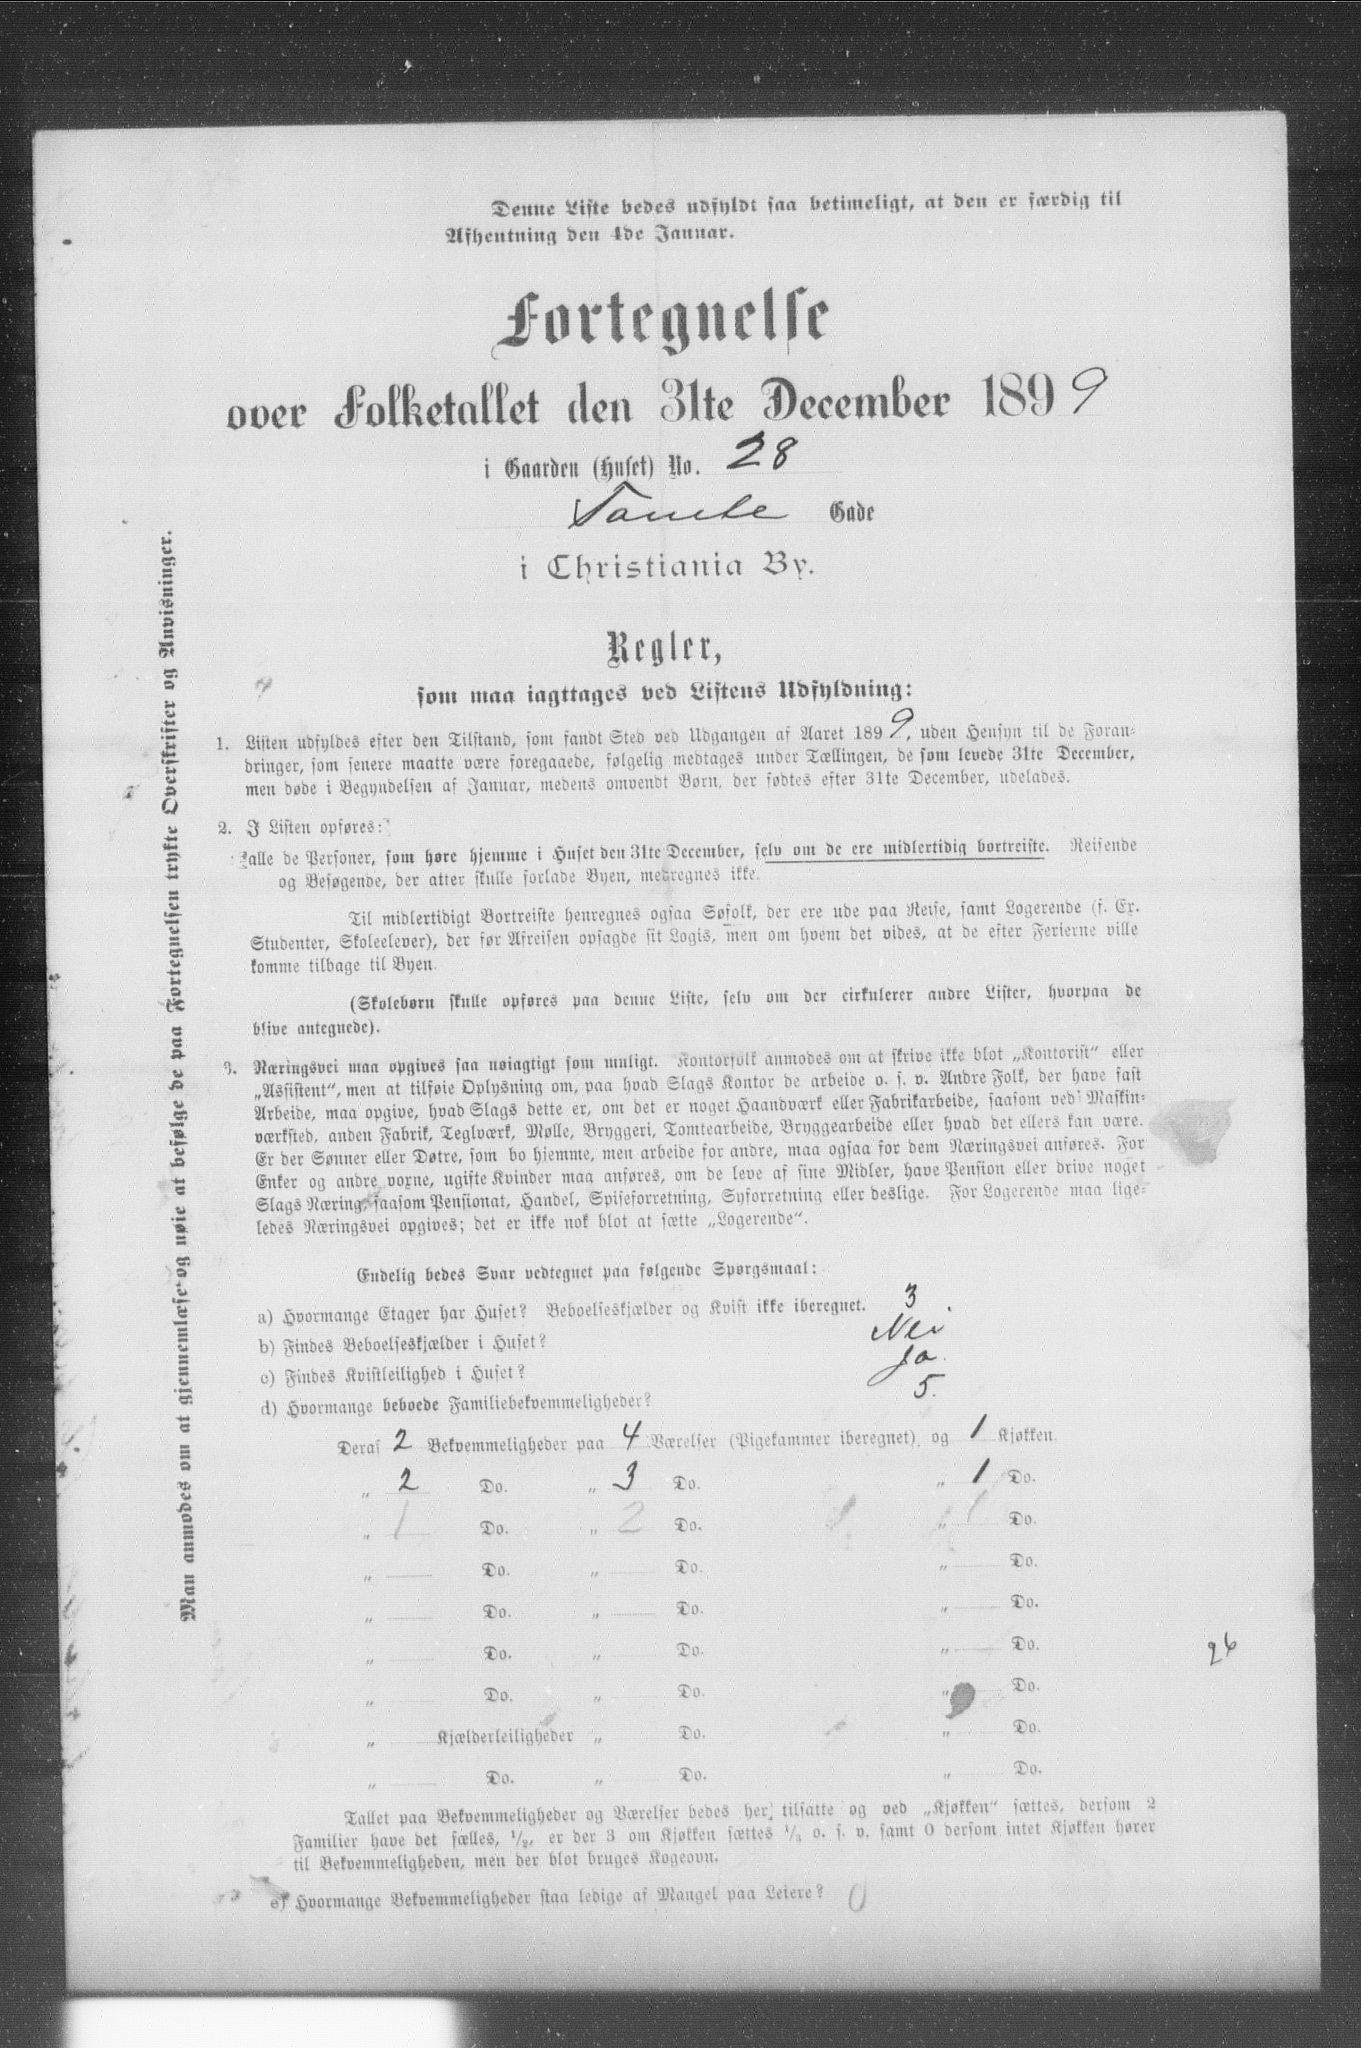 Denne Liste bedes udfyldt saa betimeligt, at den er færdig til
Afhentning den 4de Januar.
Fortegnelse
over Folketallet den 31te December 1899
i Gaarden (Huset) No. 28
Gade
i Christiania By.
Regler,
som maa iagttages ved Listens Udfyldning:
1. Listen udfyldes efter den Tilstand, som fandt Sted ved Udgangen af Aaret 1899, uden Hensyn til de Foran-
dringer, som senere maatte være foregaaede, følgelig medtages under Tællingen, de som levede 31te December,
men døde i Begyndelsen af Januar, medens omvendt Børn, der fødtes efter 31te December, udelades.
2. I Listen opføres:
alle de Personer, som høre hjemme i Huset den 31te December, selv om de ere midlertidig bortreiste. Reisende
og Besøgende, der atter skulle forlade Byen, medregnes ikke.
Til midlertidigt Bortreiste henregnes ogsaa Søfolk, der ere ude paa Reise, samt Logerende (f. Ex.
Studenter, Skoleelever), der før Afreisen opsagde sit Logis, men om hvem det vides, at de efter Ferierne ville
komme tilbage til Byen.
(Skolebørn skulle opføres paa denne Liste, selv om der cirkulerer andre Lister, hvorpaa de
blive antegnede).
3. Næringsvei maa opgives saa nøiagtigt som muligt. Kontorfolk anmodes om at skrive ikke blot „Kontorist" eller
„Assistent", men at tilføie Oplysning om, paa hvad Slags Kontor de arbeide o. s. v. Andre Folk, der have fast
Arbeide, maa opgive, hvad Slags dette er, om det er noget Haandværk eller Fabrikarbeide, saasom ved Maskin-
værksted, anden Fabrik, Teglværk, Mølle, Bryggeri, Tomtearbeide, Bryggearbeide eller hvad det ellers kan være.
Er der Sønner eller Døtre, som bo hjemme, men arbeide for andre, maa ogsaa for dem Næringsvei anføres. For
Enker og andre voxne, ugifte Kvinder maa anføres, om de leve af sine Midler, have Pension eller drive noget
Slags Næring, saasom Pensionat, Handel, Spiseforretning, Syforretning eller deslige. For Logerende maa lige-
ledes Næringsvei opgives; det er ikke nok blot at sætte „Logerende".
Endelig bedes Svar vedtegnet paa følgende Spørgsmaal:
a) Hvormange Etager har Huset? Beboelseskjælder og Kvist ikke iberegnet. 3
b) Findes Beboelseskjælder i Huset? Nei
c) Findes Kvistleilighed i Huset? Ja.
d) Hvormange beboede Familiebekvemmeligheder? 5.
Deraf 2 Bekvemmeligheder paa 4 Værelser (Pigekammer iberegnet), og 1 Kjøkken.
„ 2 Do. „ 3 Do. „ 1 Do.
„ 1 Do. „ 2 Do. „ 1 Do.
„ Do. „ Do. „ Do.
„ Do. „ Do. „ Do.
„ Do. „ Do. „ Do.
„ Do. „ Do. „ Do.
„ Kjælderleiligheder „ Do. „ Do.
„ Do. „ Do. „ Do.
Tallet paa Bekvemmeligheder og Værelser bedes her tilsatte og ved „Kjøkken" sættes, dersom 2
Familier have det fælles, 1/2, er der 3 om Kjøkken sættes 1/3 o. s. v. samt 0 dersom intet Kjøkken hører
til Bekvemmeligheden, men der blot bruges Kogeovn.
e) Hvormange Bekvemmeligheder staa ledige af Mangel paa Leiere? 0
Man anmodes om at gjennemlæse og nøie at befølge de paa Fortegnelsen trykte Overskrifter og Anvisninger.
26